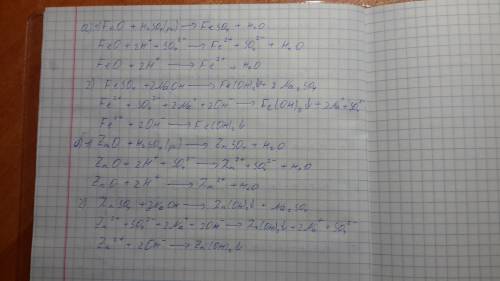 а) 1) FeO + H₂SO₄(р) → FeSO₄ + H₂O
FeO + 2H⁺ + SO₄²⁻ → Fe²⁺ + SO₄²⁻ + H₂O
FeO + 2H⁺ → Fe²⁺ + H₂O
2) FeSO₄ + 2NaOH → Fe(OH)₂↓ + Na₂SO₄
Fe²⁺ + SO₄²⁻ + 2Na⁺ + 2OH⁻ → Fe(OH)₂↓ + 2Na⁺ + SO₄²⁻
Fe²⁺ + 2OH⁻ → Fe(OH)₂↓
б) 1) ZnO + H₂SO₄(р) → ZnSO₄ + H₂O
ZnO + 2H⁺ + SO₄²⁻ → Zn²⁺ + SO₄²⁻ + H₂O
ZnO + 2H⁺ → Zn²⁺ + H₂O
2) ZnSO₄ + 2NaOH → Zn(OH)₂↓ + Na₂SO₄
Zn²⁺ + SO₄²⁻ + 2Na⁺ + 2OH⁻ → Zn(OH)₂↓ + 2Na⁺ + SO₄²⁻
Zn²⁺ + 2OH⁻ → Zn(OH)₂↓